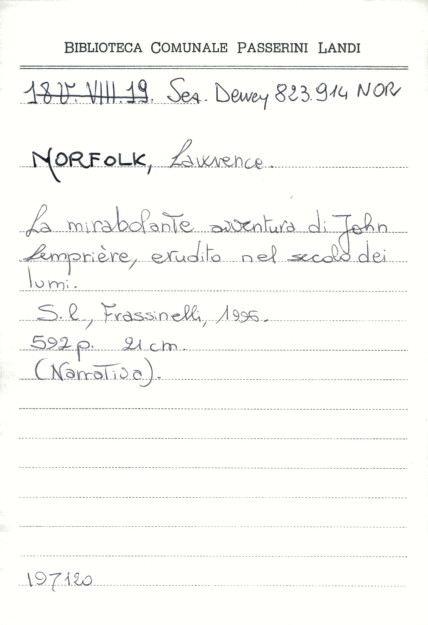 BIBLIOTECA COMUNALE PASSERINI LANDI
18 V. VIII.19. Sez. Dewey 823.914 NOR
NORFOLK, Lawrence.
La mirabolante avventura di John
Lemprière, erudito nel secolo dei
lumi.
S.l., Frassinelli, 1996.
592 p. 21 cm.
(Narrativa).
197120